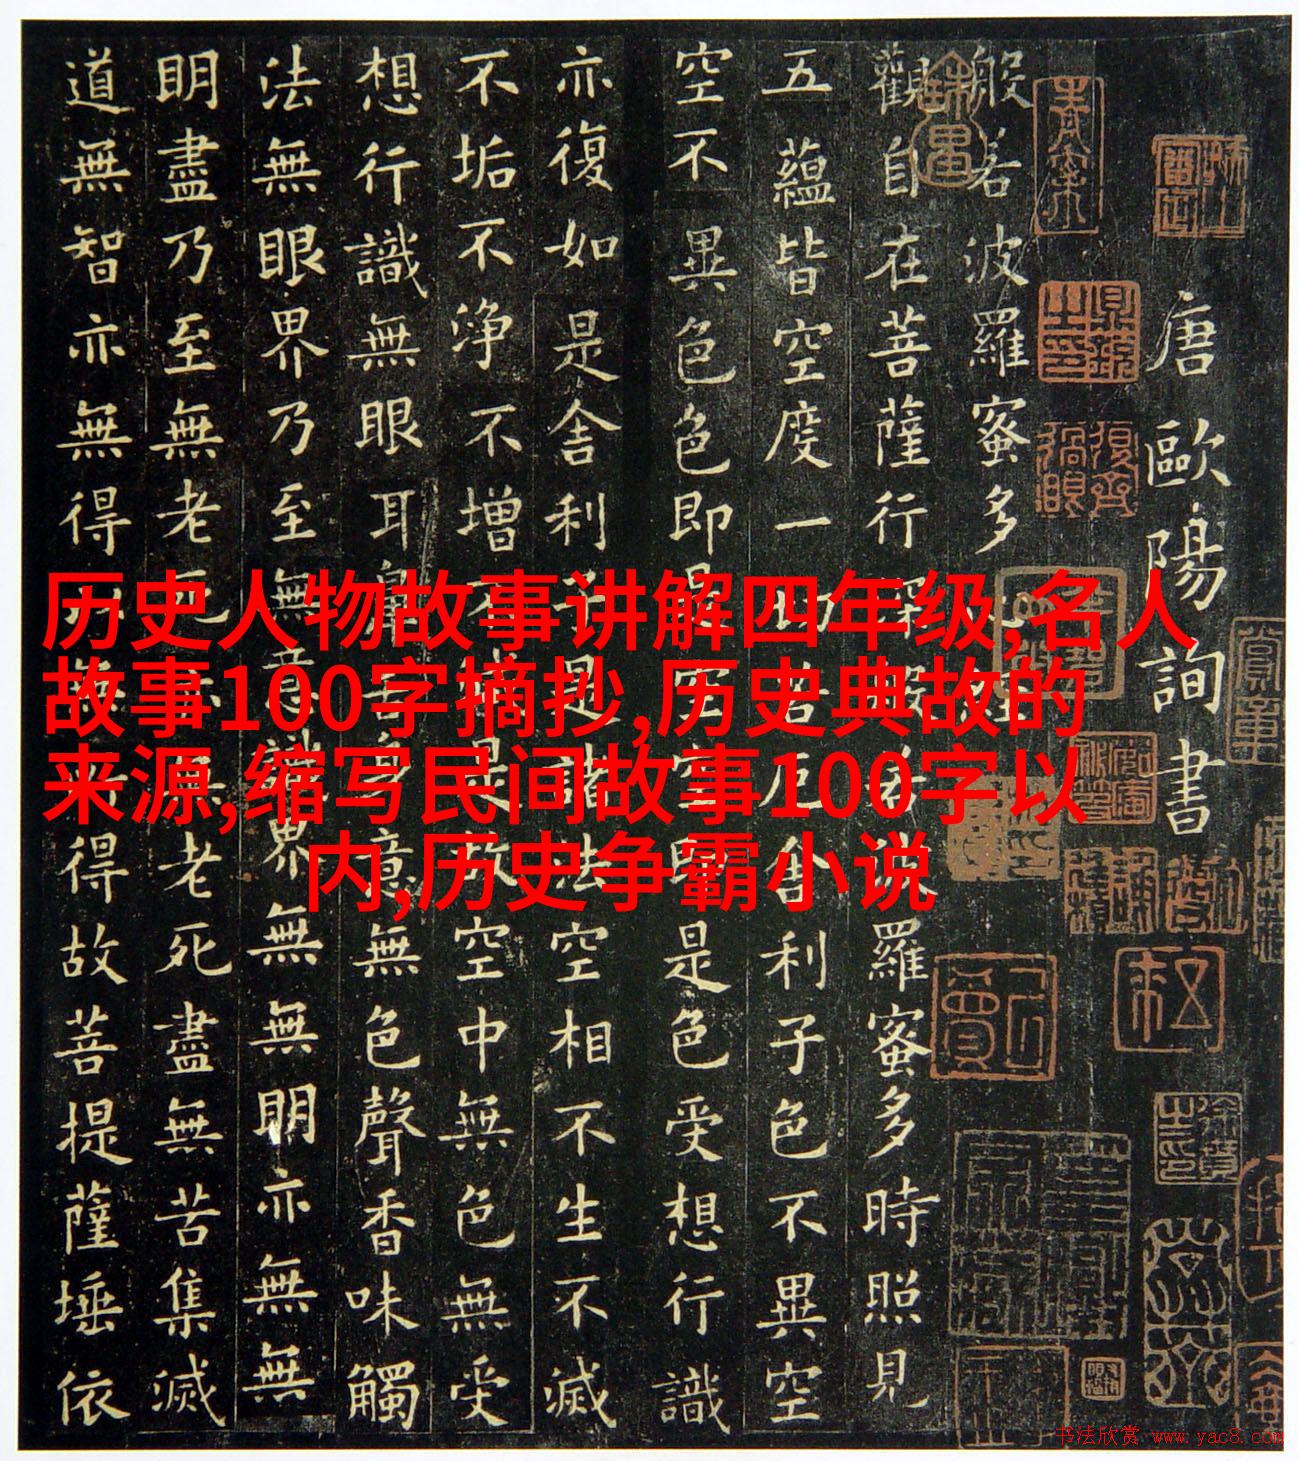 历史人物故事讲解四年级,名人
故事100字摘抄,历史典故的
来源,缩写民间故事100字以
内,历史争霸小说
唐歐陽詢書
般若波羅蜜多心經
觀自在菩薩行深般若波羅蜜多時照見
五蘊皆空度一切苦厄舍利子色不異空
空不異色色即是空空即是色受想行識
亦復如是舍利子是諸法空相不生不滅
不垢不淨不增不減是故空中無色無受
想行識無眼耳鼻舌身意無色聲香味觸
法無眼界乃至無意識界無無明亦無無
明盡乃至無老死亦無老死盡無苦集滅
道無智亦無得以無所得故菩提薩埵依
书法欣赏 www.yac8.com